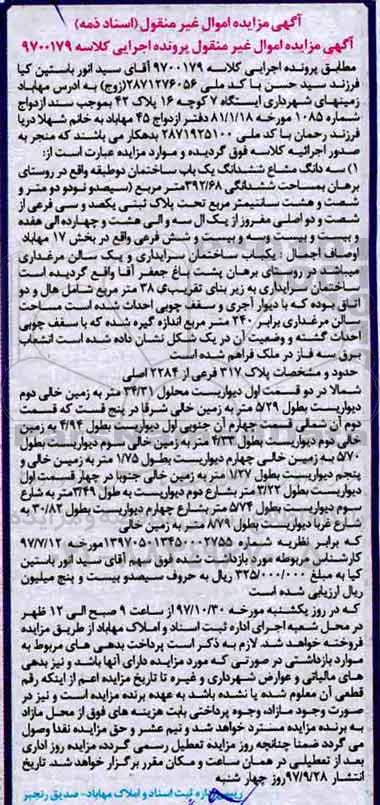 آگهی مزایده اموال غیر منقول (اسناد ذمه)
آگهی مزایده اموال غیر منقول پرونده اجرایی کلاسه ۹۷۰۰۱۷۹
مطابق پرونده اجرایی کلاسه ۹۷۰۰۱۷۹ آقای سید انور باستین کیا
فرزند سید حسن با کد ملی ۲۸۷۱۲۷۶۰۵۶(زوج) به ادرس مهاباد
زمینهای شهرداری ایستگاه ۷ کوچه ۱۶ پلاک ۴۲ بموجب سند ازدواج
شماره ۱۰۸۵ مورخه ۸۱/۱/۱۸ دفتر ازدواج ۴۵ مهاباد به خانم شهلا دریا
فرزند رحمان با کد ملی ۲۸۷۱۹۲۵۱۰۰ بدهکار می باشند که منجر به
صدور اجرائیه کلاسه فوق گردیده و موارد مزایده عبارت است از:
۱) سه دانگ مشاع ششدانگ یک باب ساختمان دوطبقه واقع در روستای
برهان بمساحت ششدانگی ۳۹۲/۶۸متر مربع (سیصدو نودو دو متر و
شصت و هشت سانتیمتر مربع تحت پلاک ثبتی یکصد و سی فرعی از
شصت و دو اصلی مفروز از یک ال سه والی هشت و چهارده الی هفده
و بیست و بیست وسه و بیست و شش فرعی واقع در بخش ۱۷ مهاباد
اوصاف اجمال : یکباب ساختمان سرایداری و یک سالن مرغداری
میباشد در روستای برهان پشت باغ جعفر آقا واقع گردیده است
ساختمان سرایداری به زیر بنای تقریبی ۳۸ متر مربع شامل هال و دو
اتاق بوده که با دیوار آجری و سقف چوبی احداث شده است مساحت
سالن مرغداری برابر ۲۴۰ متر مربع اندازه گیره شده که با سقف چوبی
احداث گشته و وضعیت آن در یک شکل نشان داده شده است انشعاب
برق سه فاز در ملک فراهم شده است
حدود و مشخصات پلاک ۳۱۷ فرعی از ۲۲۸۴ اصلی
شمالا در دو قسمت اول دیواریست محلول ۳۴/۳۱ متر به زمین خالی دوم
دیواریست بطول ۵/۲۹ متر به زمین خالی شرقا در پنج قست که قسمت
دوم آن شمالی قسمت چهارم آن جنوبی اول دیواریست بطول ۴/۹۴ به زمین
خالی دوم دیواریست بطول ۴/۳۳ متر به زمین خالی سوم دیواریست بطول
۵/۷۰ به زمین خالی چهارم دیواریست بطول ۱/۷۵ متر به زمین خالی و
پنجم دیواریست بطول ۱/۲۷ متر به زمین خالی جنوبا در چهار قسمت اول
دیواریست بطول ۳/۲۲ متر بشارع دوم دیواریست به طول ۳/۴۹متر به شارع
سوم دیواریست بطول ۵/۷۴ متر بشارع چهارم دیواریست بطول ۳۰/۸۲ به
شارع غربا دیواریست بطول ۸/۷۹ متر به زمین خالی
که برابر نظریه شماره ۱۳۹۷۰۵۰۱۳۴۵۰۰۰۲۷۵۵مورخه ۹۷/۷/۱۲
کارشناس مربوطه مورد بازداشت شده فوق سهم آقای سید انور باستین
کیا به مبلغ ۳۲۵/۰۰۰/۰۰۰ ریال به حروف سیصدو بیست و پنج میلیون
ریال ارزیابی شده است
که در روز یکشنبه مورخه ۹۷/۱۰/۳۰ از ساعت ۹ صبح الی ۱۲ ظهر
در محل شعبه اجرای اداره ثبت اسناد و املاک مهاباد از طریق مزایده
فروخته خواهد شد. لازم به ذکر است پرداخت بدهی های مربوط به
موارد بازداشتی در صورتی که مورد مزایده دارای آنها باشد و نیز بدهی
های مالیاتی و عوارض شهرداری و غیره تا تاریخ مزایده اعم از اینکه رقم
قطعی آن معلوم شده یا نشده باشد به عهده برنده مزایده است و نیز در
صورت وجود مازاد، وجوه پرداختی بابت هزینه های فوق از محل مازاد
به برنده مزایده مسترد خواهد شد و نیم عشر و حق مزایده نقدا وصول
می گردد ضمنا چنانچه روز مزایده تعطیل رسمی گردد، مزایده روز اداری
بعد از تعطیلی در همان ساعت و مکان مقرر برگزار خواهد شد. تاریخ
انتشار ۹۷/۹/۲۸ روز چهار شنبه
رییس اداره ثبت اسناد و املاک مهاباد- صدیق رنجبر